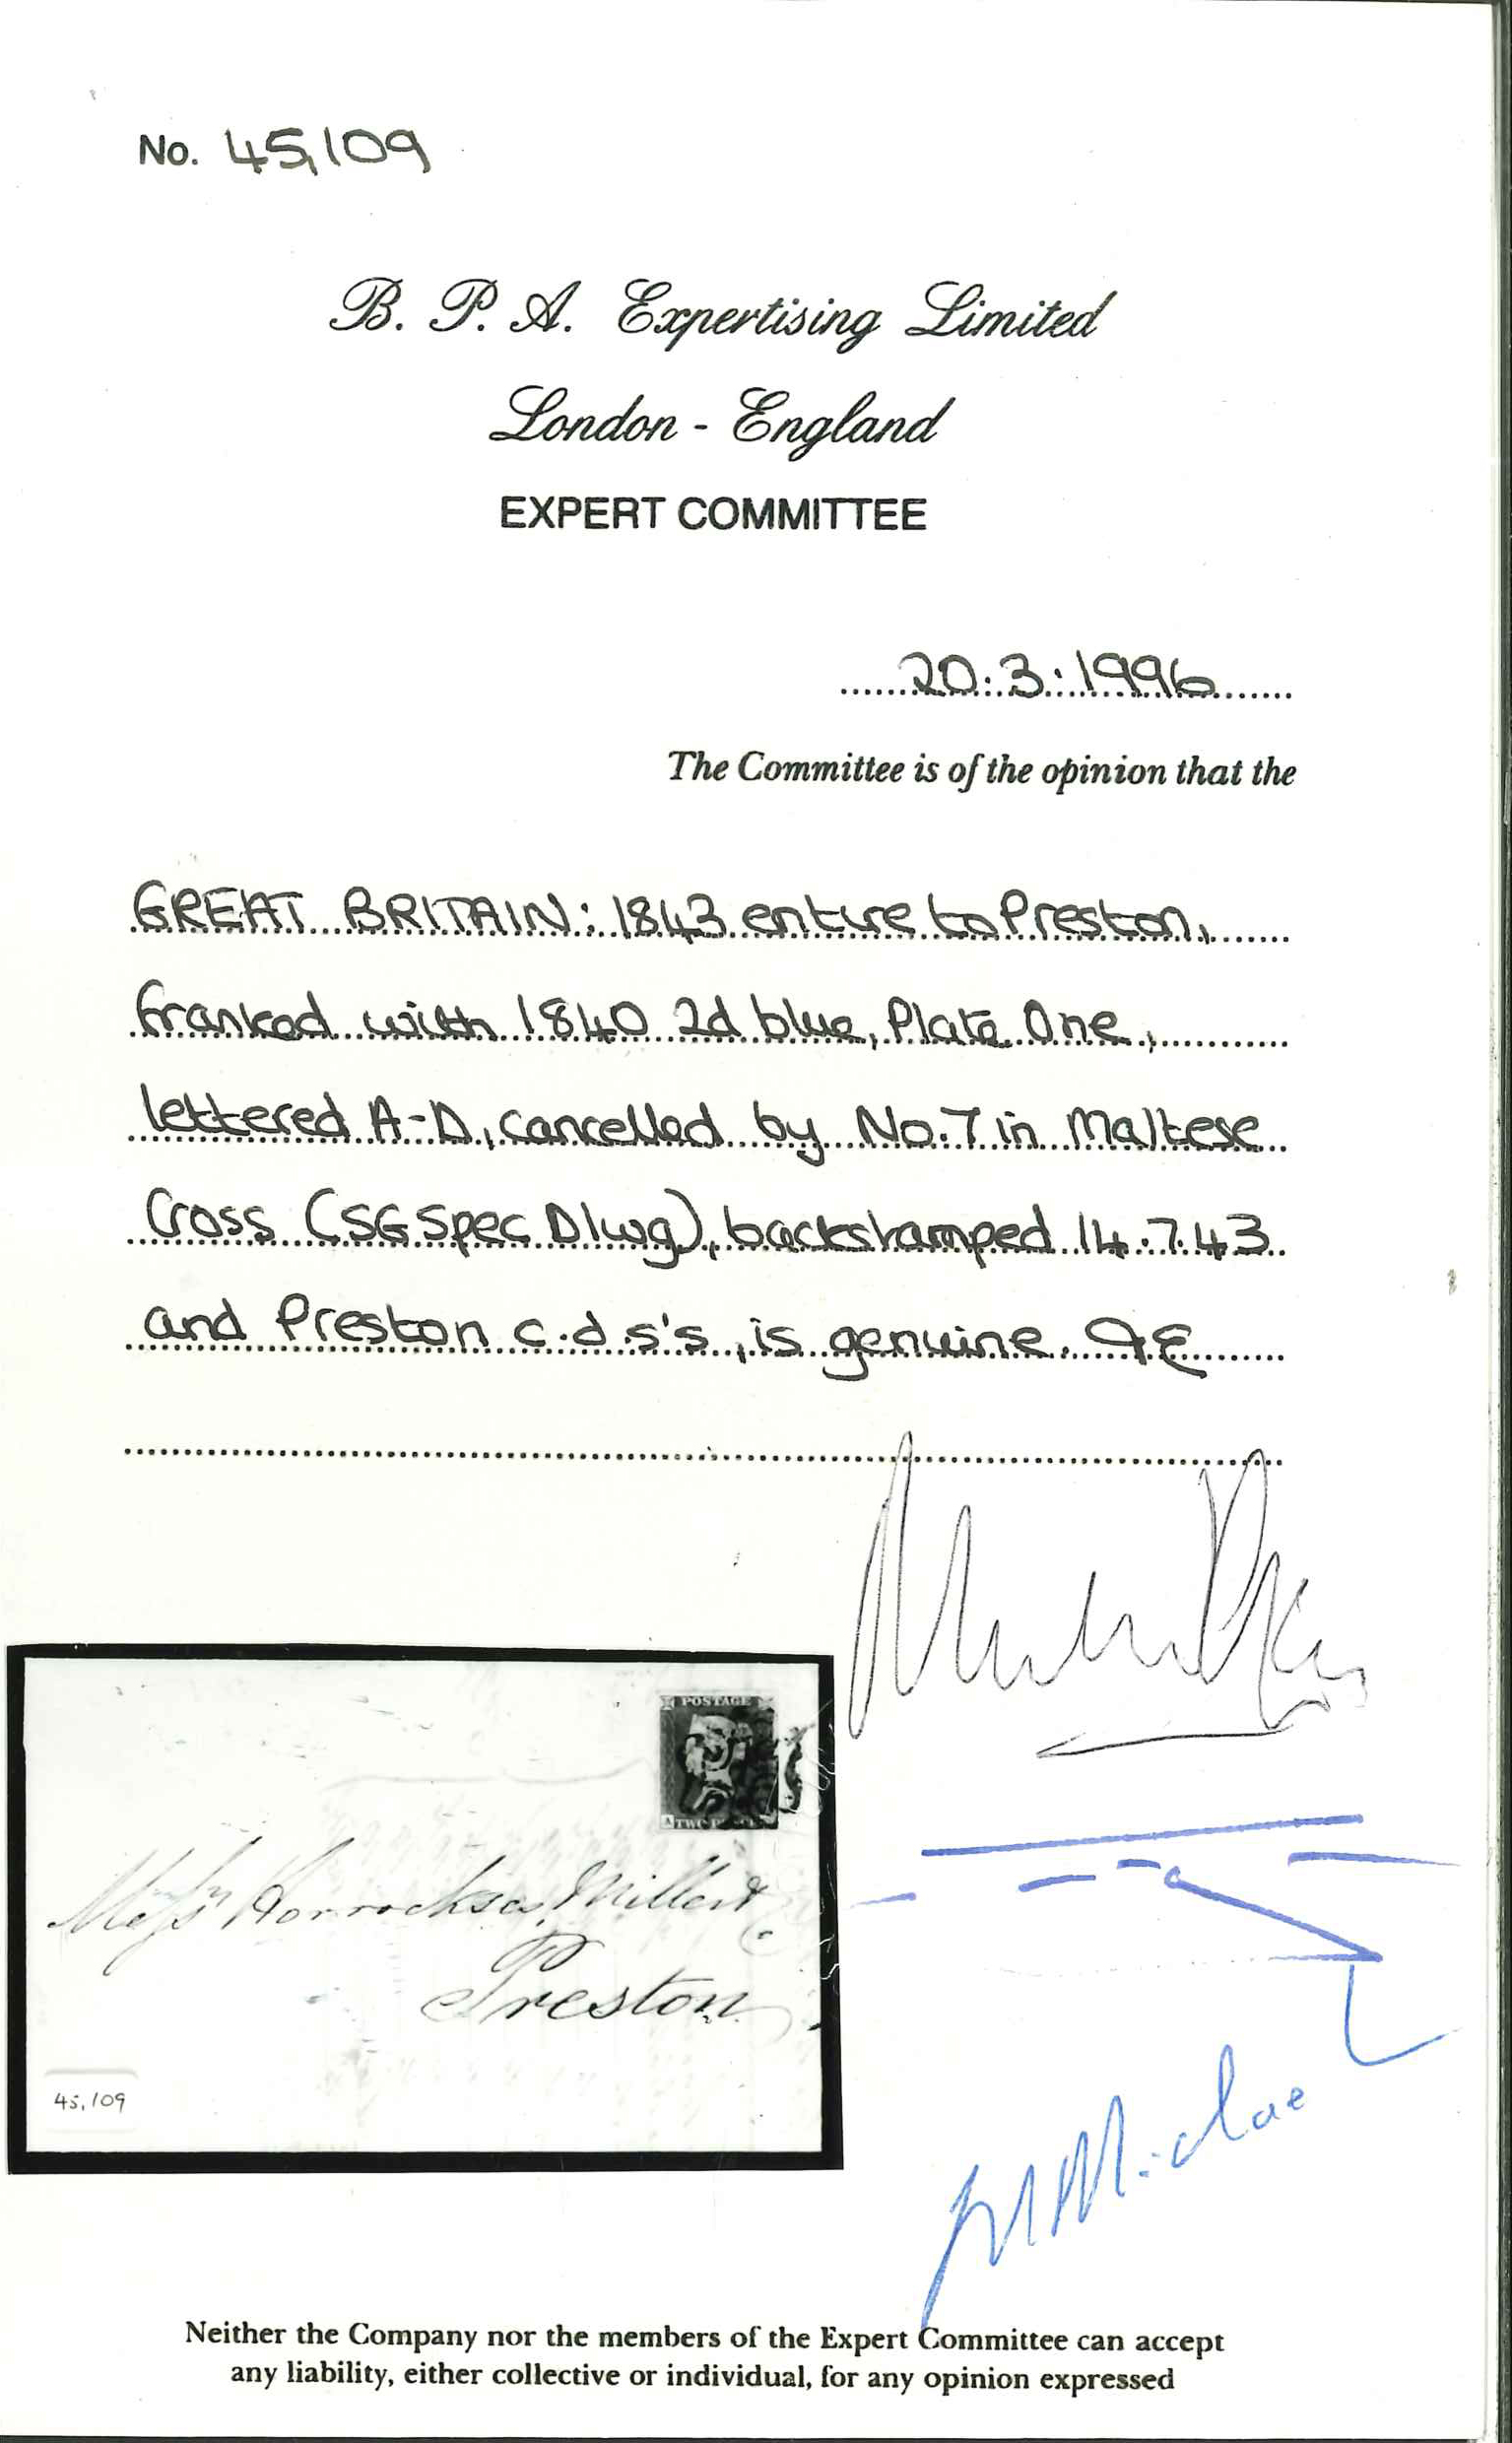 No. 45,109
B. P. A. Expertising Limited
London - England
EXPERT COMMITTEE
20.3.1996
The Committee is of the opinion that the
GREAT BRITAIN: 1843 entire to Preston,
franked with 1840 2d blue, Plate One,
lettered A-D, cancelled by No.7 in Maltese
Cross (SG Spec D1wg), backstamped 14.7.43
and Preston c.d.s's, is genuine.
POSTAGE
A TWO PENCE
Messrs Horrockses, Miller & Co.
Preston
45,109
Neither the Company nor the members of the Expert Committee can accept
any liability, either collective or individual, for any opinion expressed